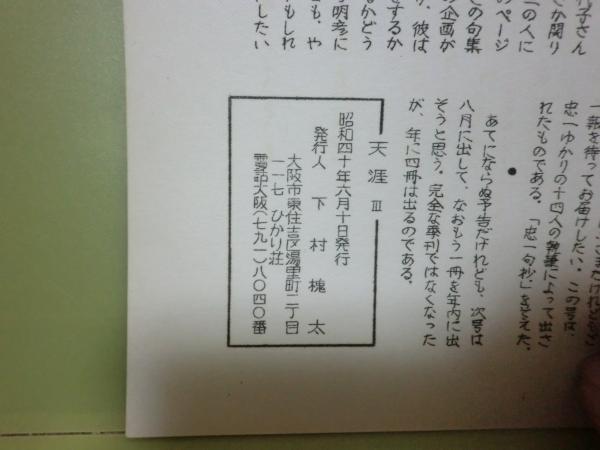 忠一ゆかりの十四人の執筆によって出さ
れたものである。「忠一句抄」を
●
あてにならぬ予告だけれども、次号は
八月に出して、なおもう一冊を年内に出
そうと思う。完全な季刊ではなくなった
が、年に四冊は出るのである。
行子さん
でか関り
二の人に
のページ
ての句集
の企画が
り、彼は
をするか
るかどう
明彦に
とも、や
もしれ
したい
天涯 Ⅲ
昭和四十年六月十日発行
発行人 下村槐太
大阪市東住吉区湯里町二丁目
一一七 ひかり荘
電話大阪(七九一)八〇四〇番